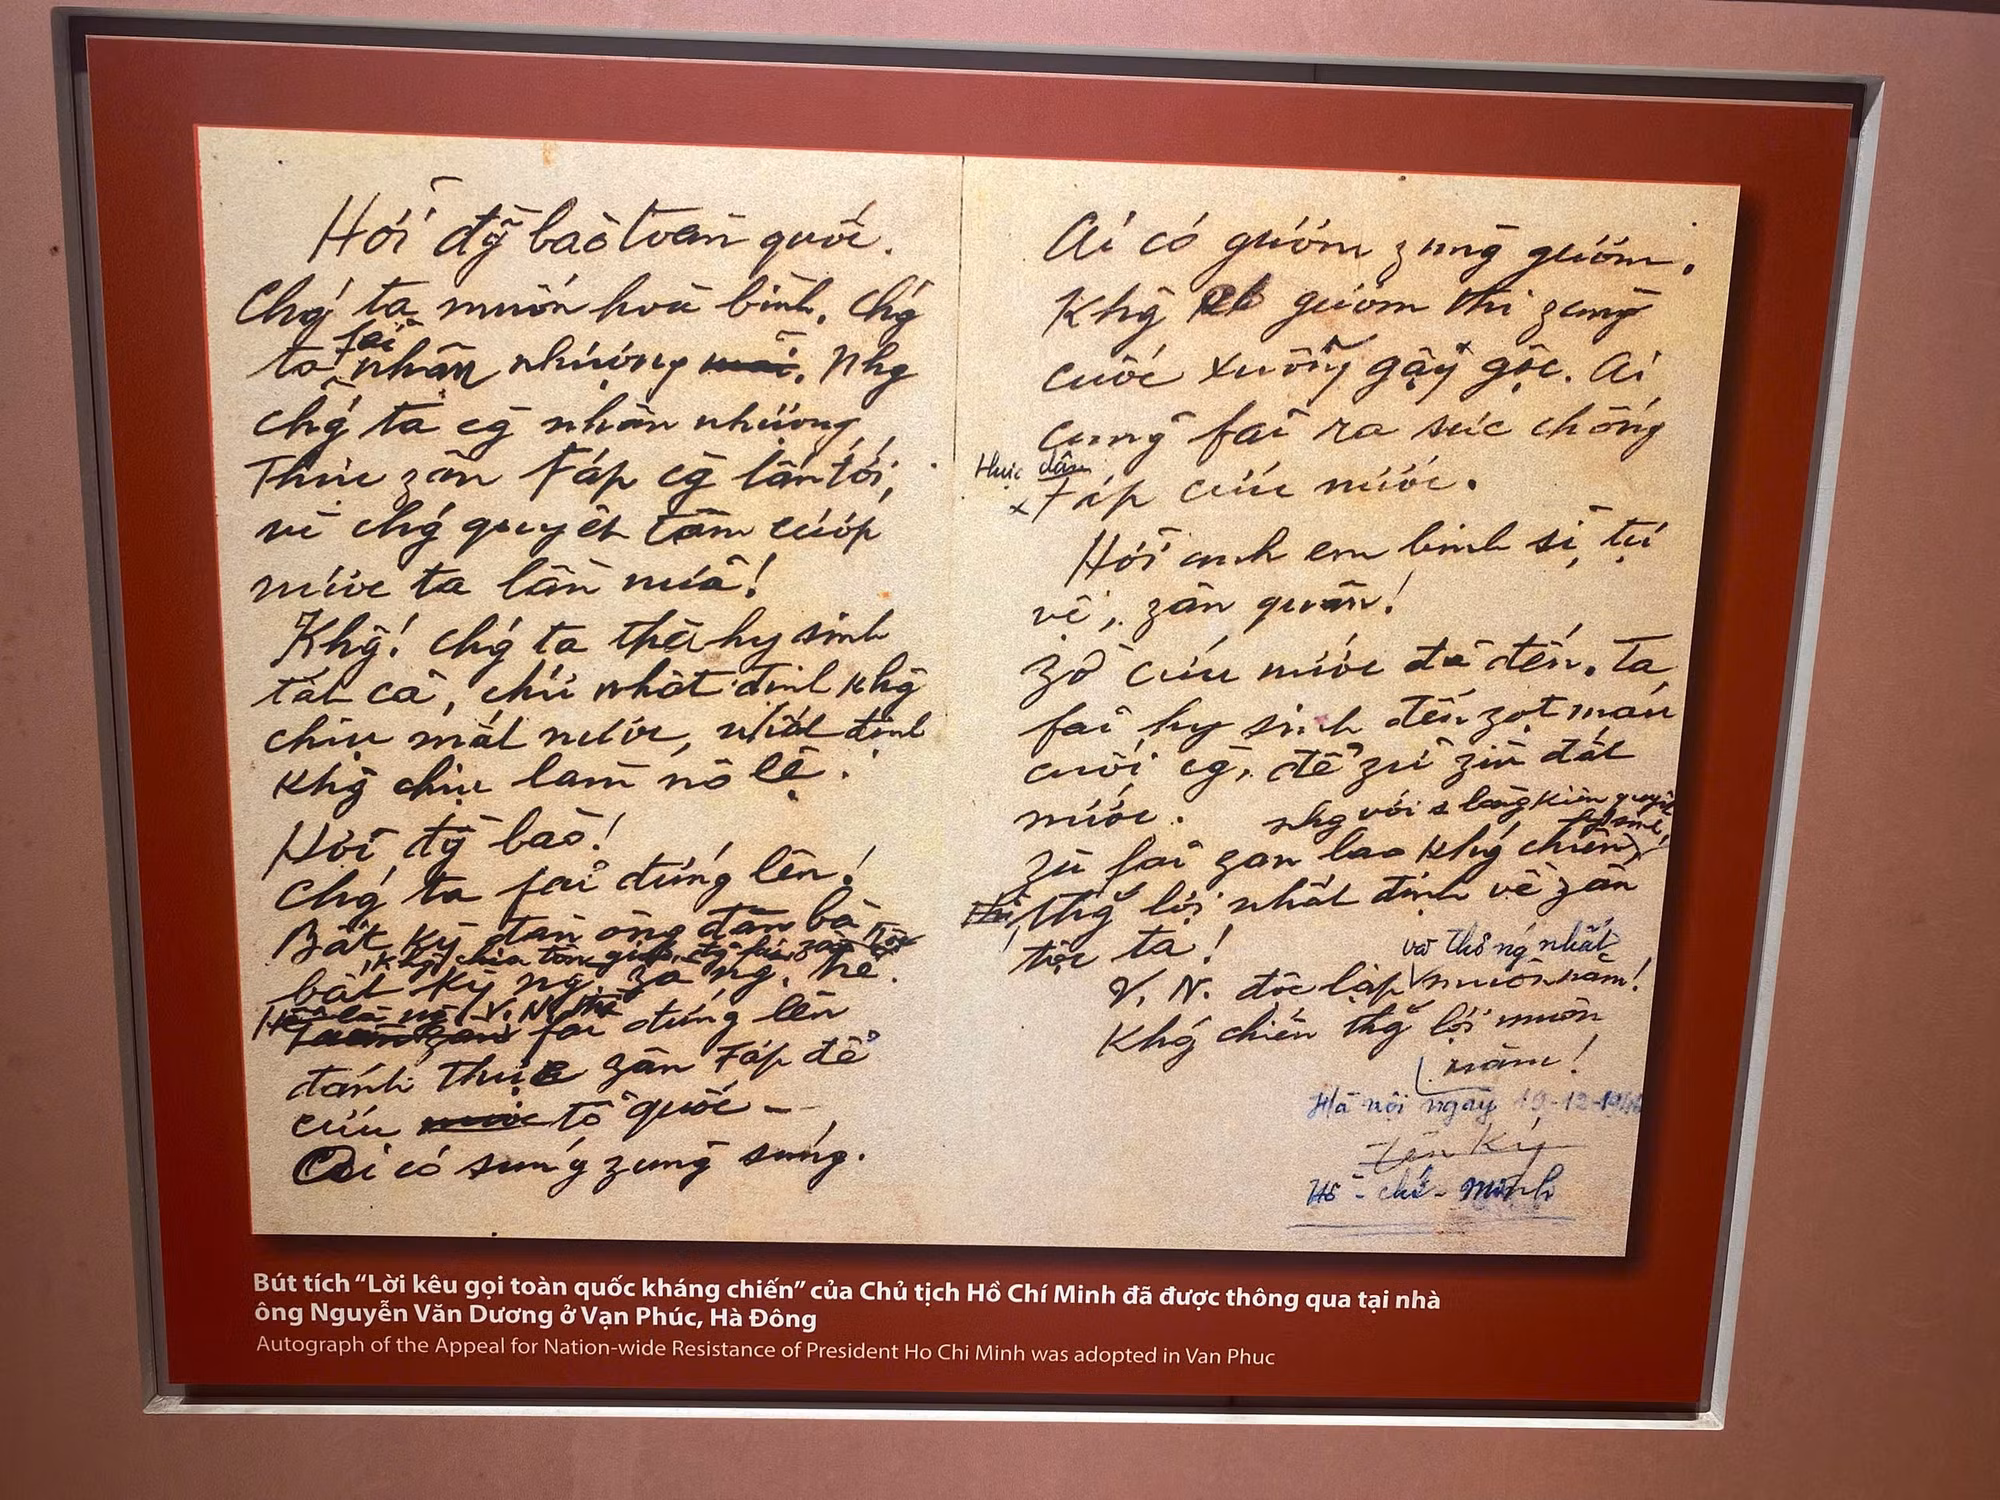 Hỡi đg̃ bào toàn quốc.
Chģ ta muốn hoà bình, chģ
fải
ta nhân nhượng. Nhg
chģ ta cg̀ nhân nhượng
Thực zân Fáp cg̀ lấn tới,
vì chģ quyết tâm cướp
nước ta lần nữa!
Khg̀! chģ ta thà hy sinh
tất cả, chứ nhất định khg̀
chịu mất nước, nhất định
khg̀ chịu làm nô lệ.
Hỡi đg̀ bào!
Chģ ta fải đứng lên!
Bất kỳ đàn ông đàn bà
khg̀ chia tôn giáo, đg̉ fái, zân tộc
bất kỳ ng. zà ng. trẻ.
Hễ là ng. V.N. thì
fải đứng lên
đánh thực zân Fáp để
cứu nước tổ quốc –
Ai có súng zùng súng.
Ai có gươm zùng gươm.
Khg̀ gươm thì zùng
cuốc xuổng gậy gộc. Ai
cũng fải ra sức chống
thực dân
x Fáp cứu nước.
Hỡi anh em binh sĩ, tự
vệ, zân quân!
Zờ cứu nước đã đến. Ta
fải hy sinh đến zọt máu
cuối cg̀, để zữ zìn đất
nước.
nhg với 1 lòng kiên quyết
hy sinh,
Zù fải zan lao khģ chiến,
thì thg̉ lợi nhất định về zân
tộc ta!
và thống nhất
V. N. độc lập muôn năm!
Khģ chiến thg̉ lợi muôn
năm!
Hà nội ngày 19-12-1946
Tên Ký
Hồ-chí-minh
Bút tích “Lời kêu gọi toàn quốc kháng chiến” của Chủ tịch Hồ Chí Minh đã được thông qua tại nhà
ông Nguyễn Văn Dương ở Vạn Phúc, Hà Đông
Autograph of the Appeal for Nation-wide Resistance of President Ho Chi Minh was adopted in Van Phuc